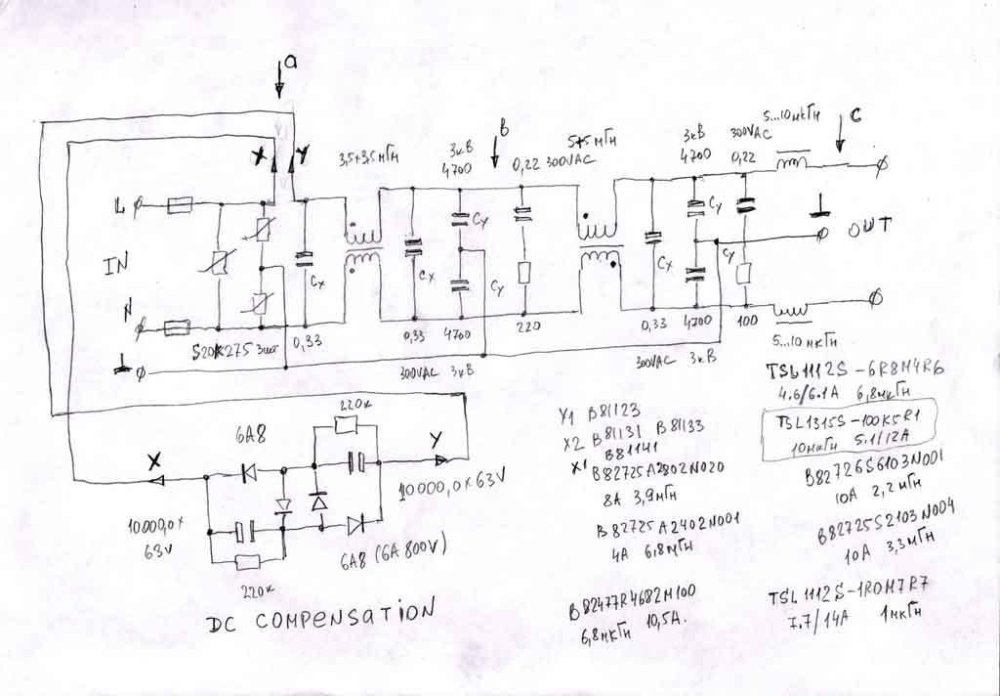 a
5...10 мкГн
c
3кВ
300VAC
4700
0,22
b
3кВ
4700
0,22 300VAC
5+5 мГн
3,5+3,5 мГн
X
Y
L
IN
N
Cx
Cx
Cy
Cy
Cx
Cy
Cy
OUT
S20K275 3шт
0,33
0,33
4700
220
0,33
4700
100
5...10 мкГн
300VAC
300VAC 3кВ
3кВ
TSL1112S-6R8M4R6
4.6/6.1A 6,8мкГн
TSL1315S-100K5R1
10мкГн 5.1/12A
B82726S6103N001
10A 2,2 мГн
B82725S2103N004
10A 3,3мГн
TSL1112S-1R0M7R7
7.7/14A 1мкГн
Y1 B81123
X2 B81131 B81133
B81141
X1
B82725A2802N020
8A 3,9мГн
B82725A2402N001
4A 6,8мГн
B82477R4682M100
6,8мкГн 10,5A.
220к
6A8
X
Y
10000,0x63V
10000,0x
63V
6A8 (6A 800V)
220к
DC COMPENSATION